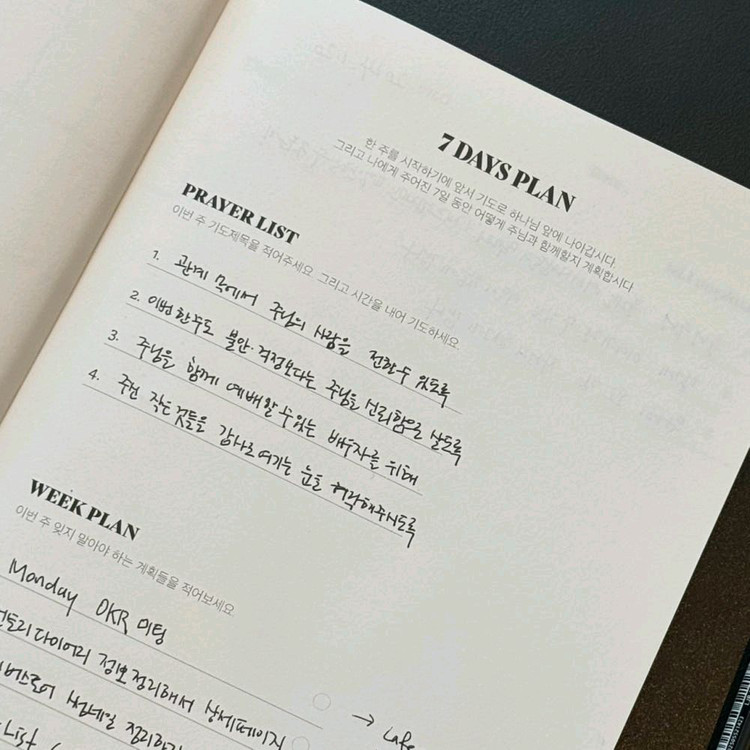 7 DAYS PLAN
한 주를 시작하기에 앞서 기도로 하나님 앞에 나아갑시다.
그리고 나에게 주어진 7일 동안 어떻게 주님과 함께할지 계획합시다.
PRAYER LIST
이번 주 기도제목을 적어주세요. 그리고 시간을 내어 기도하세요.
1. 관계 속에서 주님의 사랑을 전할 수 있도록
2. 이번 한주도 불안·걱정보다는 주님을 신뢰함으로 살도록
3. 주님을 함께 예배할 수 있는 배우자를 위해
4. 주신 작은 것들을 감사로 여기는 눈을 허락해주시도록
WEEK PLAN
이번 주 잊지 말아야 하는 계획들을 적어보세요.
Monday OKR 미팅
다이어리 정보 정리해서 상세페이지
썸네일 정리하기
List
→ Cafe